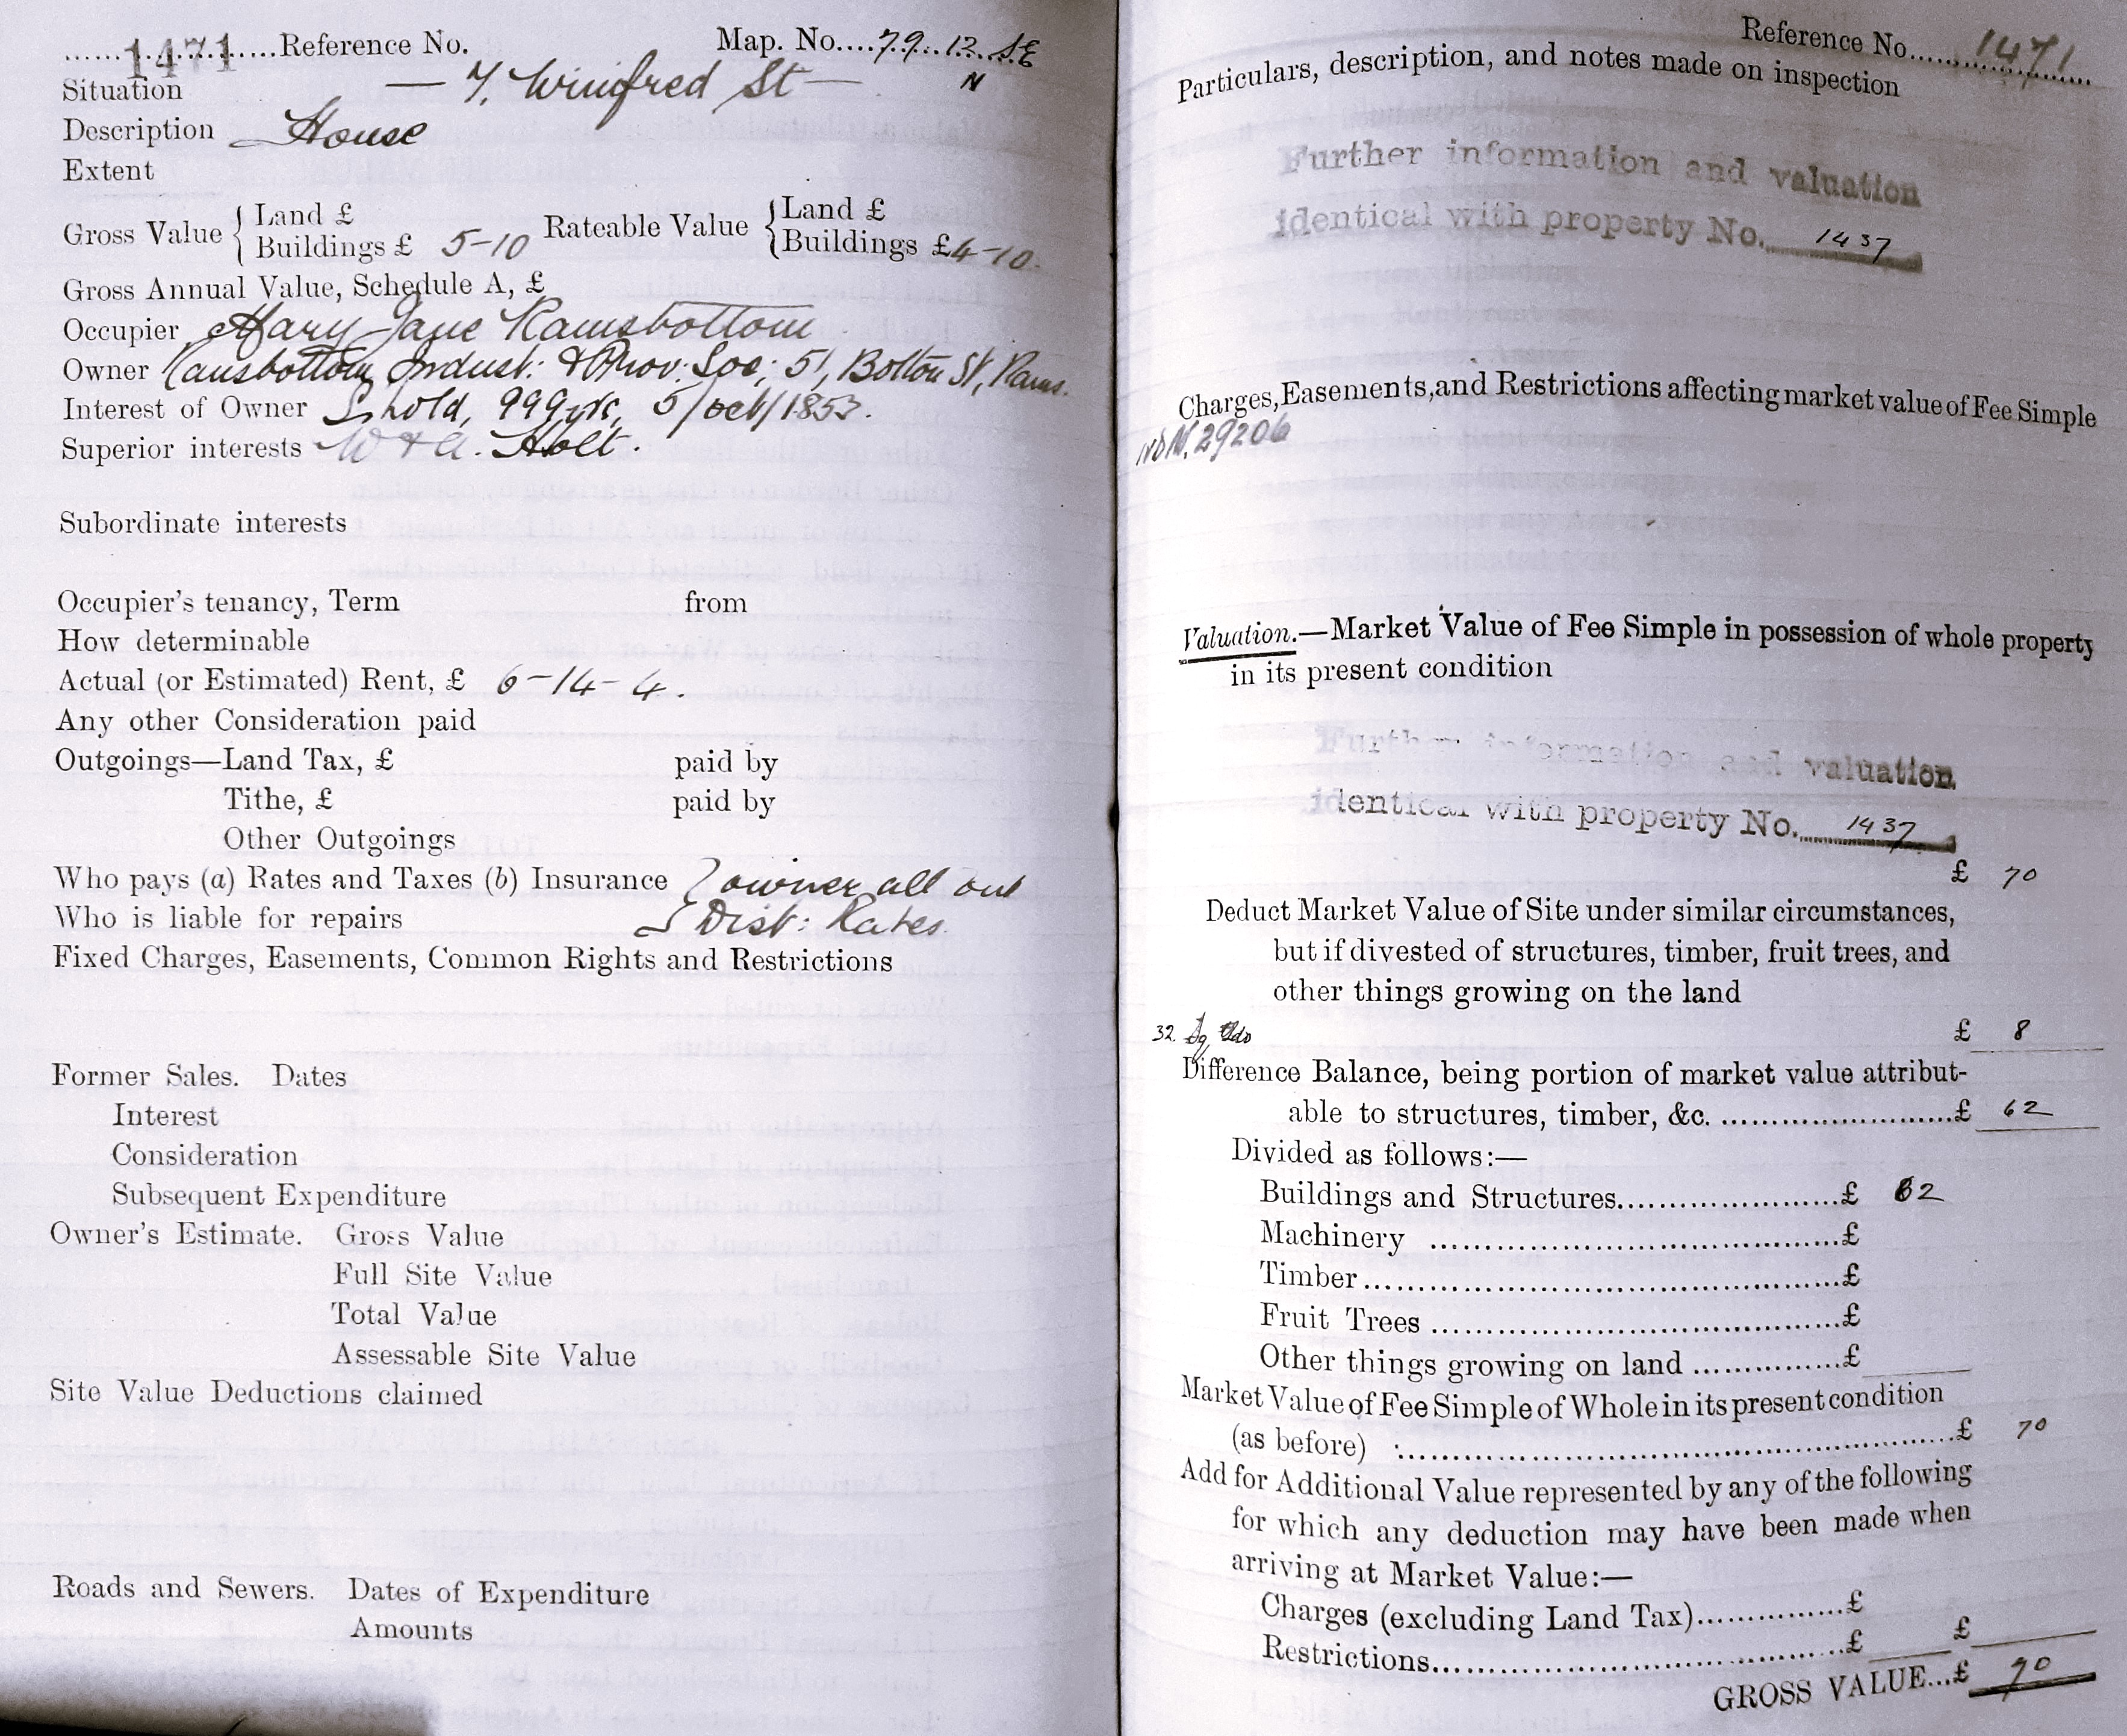 1471 Reference No. Map. No. 79.12.SE
N
Situation — 7, Winifred St —
Description House
Extent
Gross Value { Land £ Rateable Value { Land £
Buildings £ 5-10 Buildings £ 4-10.
Gross Annual Value, Schedule A, £
Occupier Mary Jane Ramsbottom
Owner Ramsbottom Indust: & Prov: Soc; 51, Bolton St, Rams.
Interest of Owner L.hold, 999yrs, 5/Oct/1853.
Superior interests W & A. Holt.
Subordinate interests
Occupier's tenancy, Term from
How determinable
Actual (or Estimated) Rent, £ 6-14-4.
Any other Consideration paid
Outgoings—Land Tax, £ paid by
Tithe, £ paid by
Other Outgoings
Who pays (a) Rates and Taxes (b) Insurance } owner all but
Who is liable for repairs } Dist: Rates.
Fixed Charges, Easements, Common Rights and Restrictions
Former Sales. Dates
Interest
Consideration
Subsequent Expenditure
Owner's Estimate. Gross Value
Full Site Value
Total Value
Assessable Site Value
Site Value Deductions claimed
Roads and Sewers. Dates of Expenditure
Amounts
Reference No. 1471
Particulars, description, and notes made on inspection
Further information and valuation
identical with property No. 1437
Charges, Easements, and Restrictions affecting market value of Fee Simple
29206
Valuation.—Market Value of Fee Simple in possession of whole property
in its present condition
Further information and valuation
identical with property No. 1437
£ 70
Deduct Market Value of Site under similar circumstances,
but if divested of structures, timber, fruit trees, and
other things growing on the land
32. Sq Yds £ 8
Difference Balance, being portion of market value attribut-
able to structures, timber, &c. £ 62
Divided as follows:—
Buildings and Structures £ 62
Machinery £
Timber £
Fruit Trees £
Other things growing on land £
Market Value of Fee Simple of Whole in its present condition
(as before) £ 70
Add for Additional Value represented by any of the following
for which any deduction may have been made when
arriving at Market Value:—
Charges (excluding Land Tax) £
Restrictions £ £
GROSS VALUE...£ 70